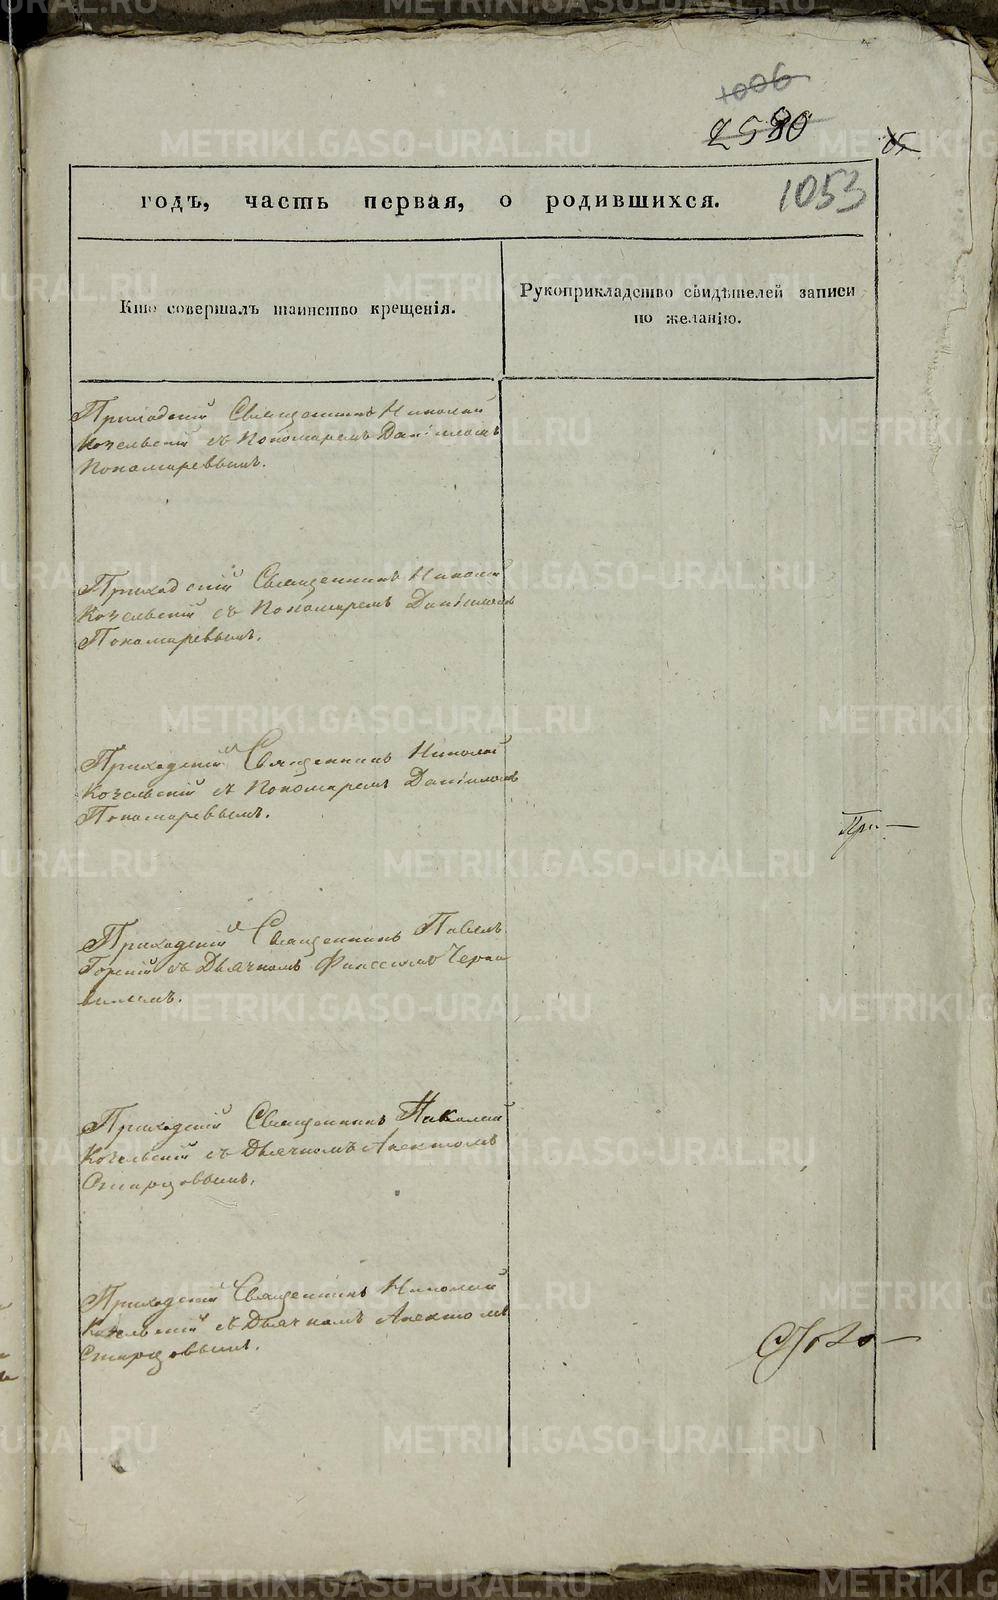 1006
2580
1053
годъ, часть первая, о родившихся.
Кто совершалъ таинство крещенія.
Рукоприкладство свидѣтелей записи
по желанію.
Приходскій Священникъ Николай
Козельскій съ Пономаремъ Даніиломъ
Пономаревымъ.
Приходскій Священникъ Николай
Козельскій съ Пономаремъ Даніиломъ
Пономаревымъ.
Приходскій Священникъ Николай
Козельскій съ Пономаремъ Даніиломъ
Пономаревымъ.
При-
Приходскій Священникъ Павелъ
Горскій съ Дьячкомъ
Приходскій Священникъ Николай
Козельскій съ Дьячкомъ
Старцовымъ.
Приходскій Священникъ Николай
Козельскій съ Дьячкомъ
Старцовымъ.
METRIKI.GASO-URAL.RU